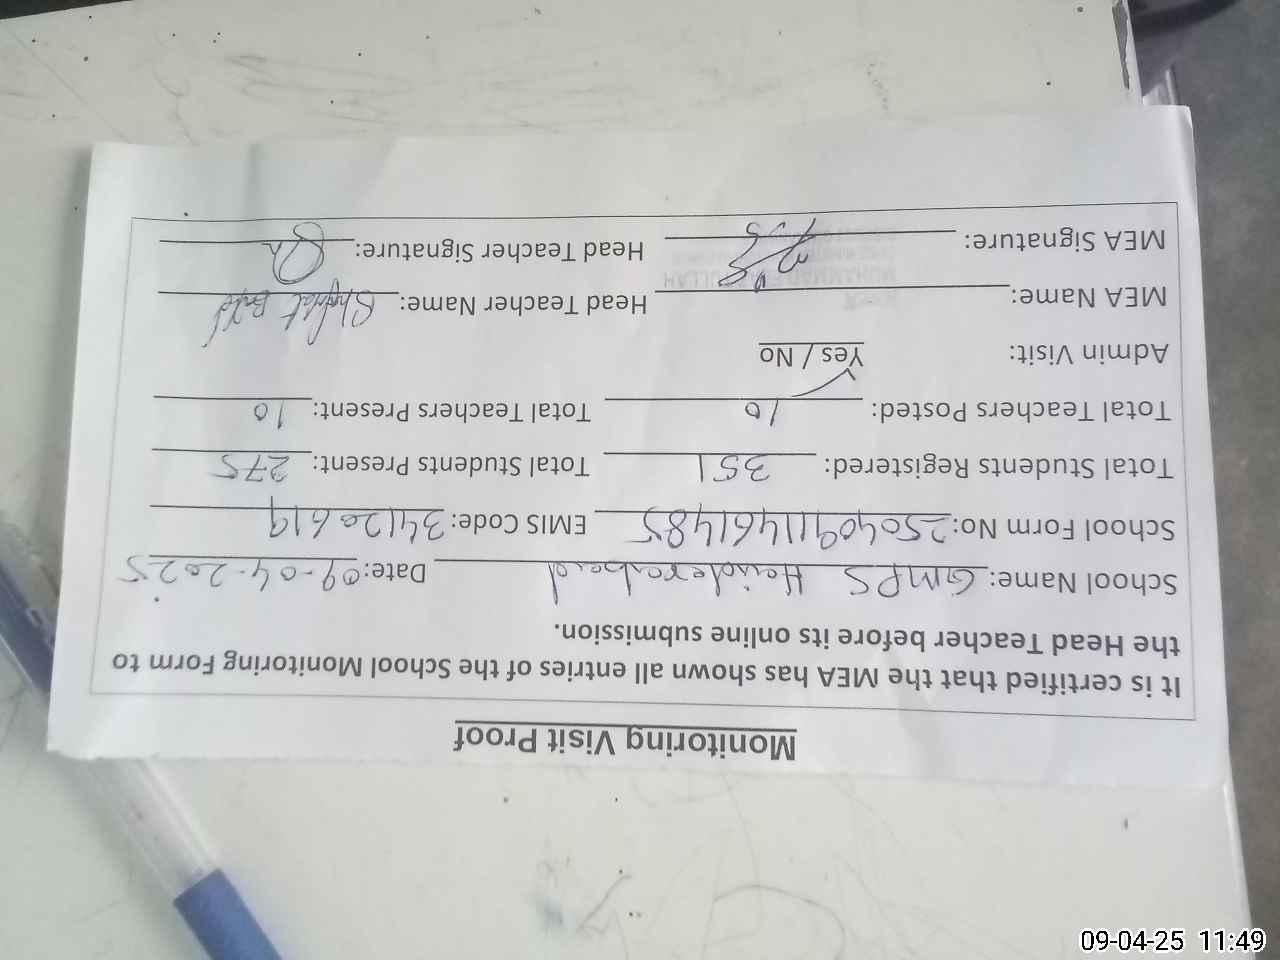 Monitoring Visit Proof
It is certified that the MEA has shown all entries of the School Monitoring Form to
the Head Teacher before its online submission.
School Name: GMPS Haiderabad Date: 09-04-2025
School Form No: 250409111461485 EMIS Code: 34120619
Total Students Registered: 351 Total Students Present: 275
Total Teachers Posted: 10 Total Teachers Present: 10
Admin Visit: Yes / No
MEA Name: Head Teacher Name:
MEA Signature: Head Teacher Signature:
09-04-25 11:49